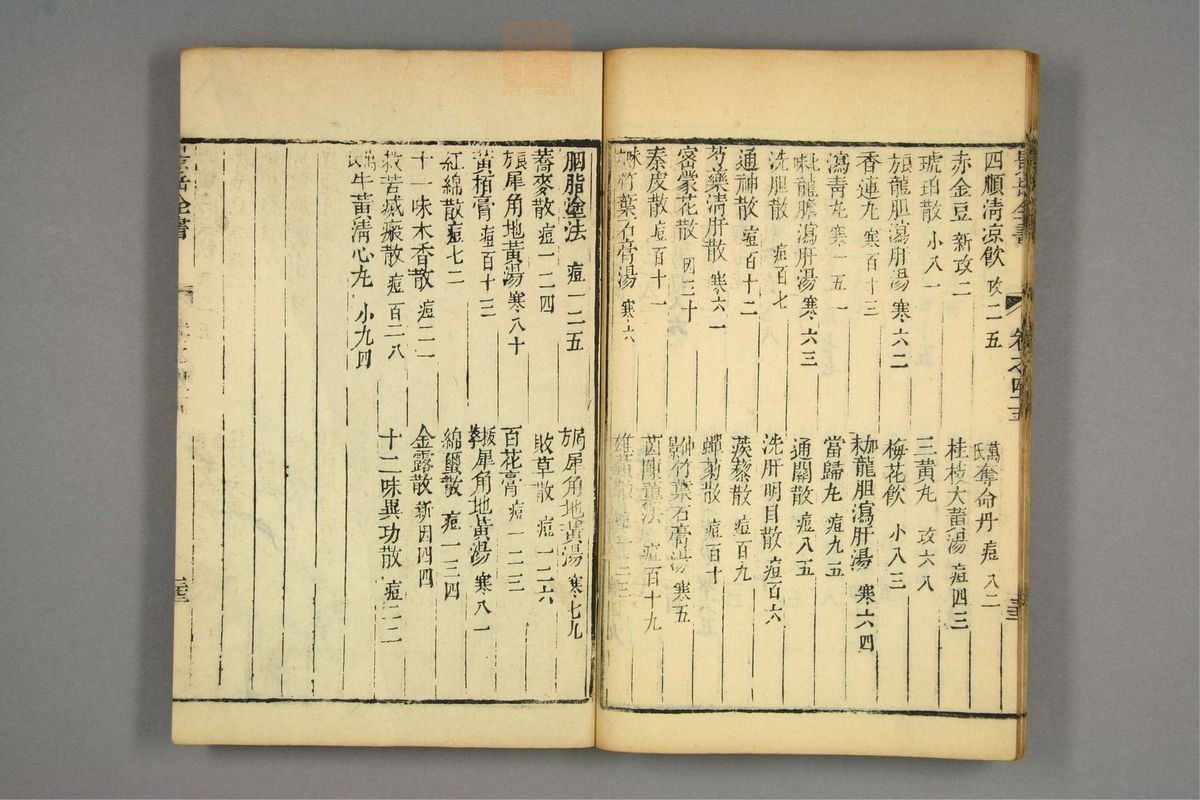 景岳全書 卷之四十五
四順清凉飲 攻二五
萬氏奪命丹 痘八二
赤金豆 新攻二
桂枝大黄湯 痘四三
琥珀散 小八一
三黄丸 攻六八
龍胆瀉肝湯 寒六二
梅花飲 小八三
香連丸 寒百十三
加味龍胆瀉肝湯 寒六四
瀉青丸 寒一五一
當歸丸 痘九五
龍膽瀉肝湯 寒六三
通關散 痘八五
洗胆散 痘百七
洗肝明目散 痘百六
通神散 痘百十二
蒺藜散 痘百九
芍藥清肝散 寒六一
蟬菊散 痘百十
密蒙花散 因三十
竹葉石膏湯 寒五
秦皮散 痘百十一
茵陳熏法 痘百十九
竹葉石膏湯 寒六
胭脂塗法 痘一二五
犀角地黄湯 寒七九
蕎麥散 痘一二四
敗草散 痘一二六
犀角地黄湯 寒八十
百花膏 痘一二三
黄栢膏 痘百十三
犀角地黄湯 寒八一
紅綿散 痘七二
綿蠒散 痘一三四
十一味木香散 痘二二
金露散 新因四四
救苦滅瘢散 痘百二八
十二味異功散 痘二二
萬氏牛黄清心丸 小九四
景岳全書